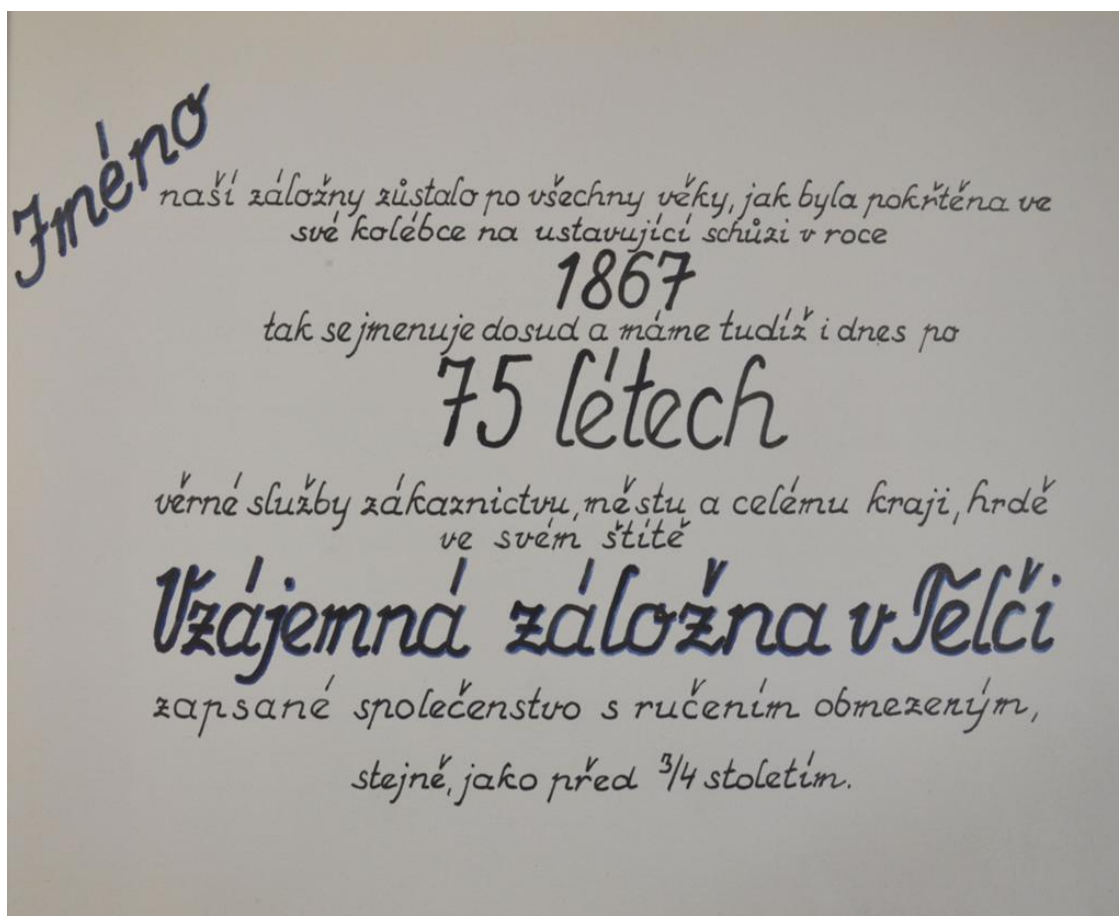 Jméno
naší záložny zůstalo po všechny věky, jak byla pokřtěna ve
své kolébce na ustavující schůzi v roce
1867
tak se jmenuje dosud a máme tudíž i dnes po
75 létech
věrné služby zákaznictvu, městu a celému kraji, hrdě
ve svém štítě
Vzájemná záložna v Telči
zapsané společenstvo s ručením obmezeným,
stejně, jako před 3/4 stoletím.